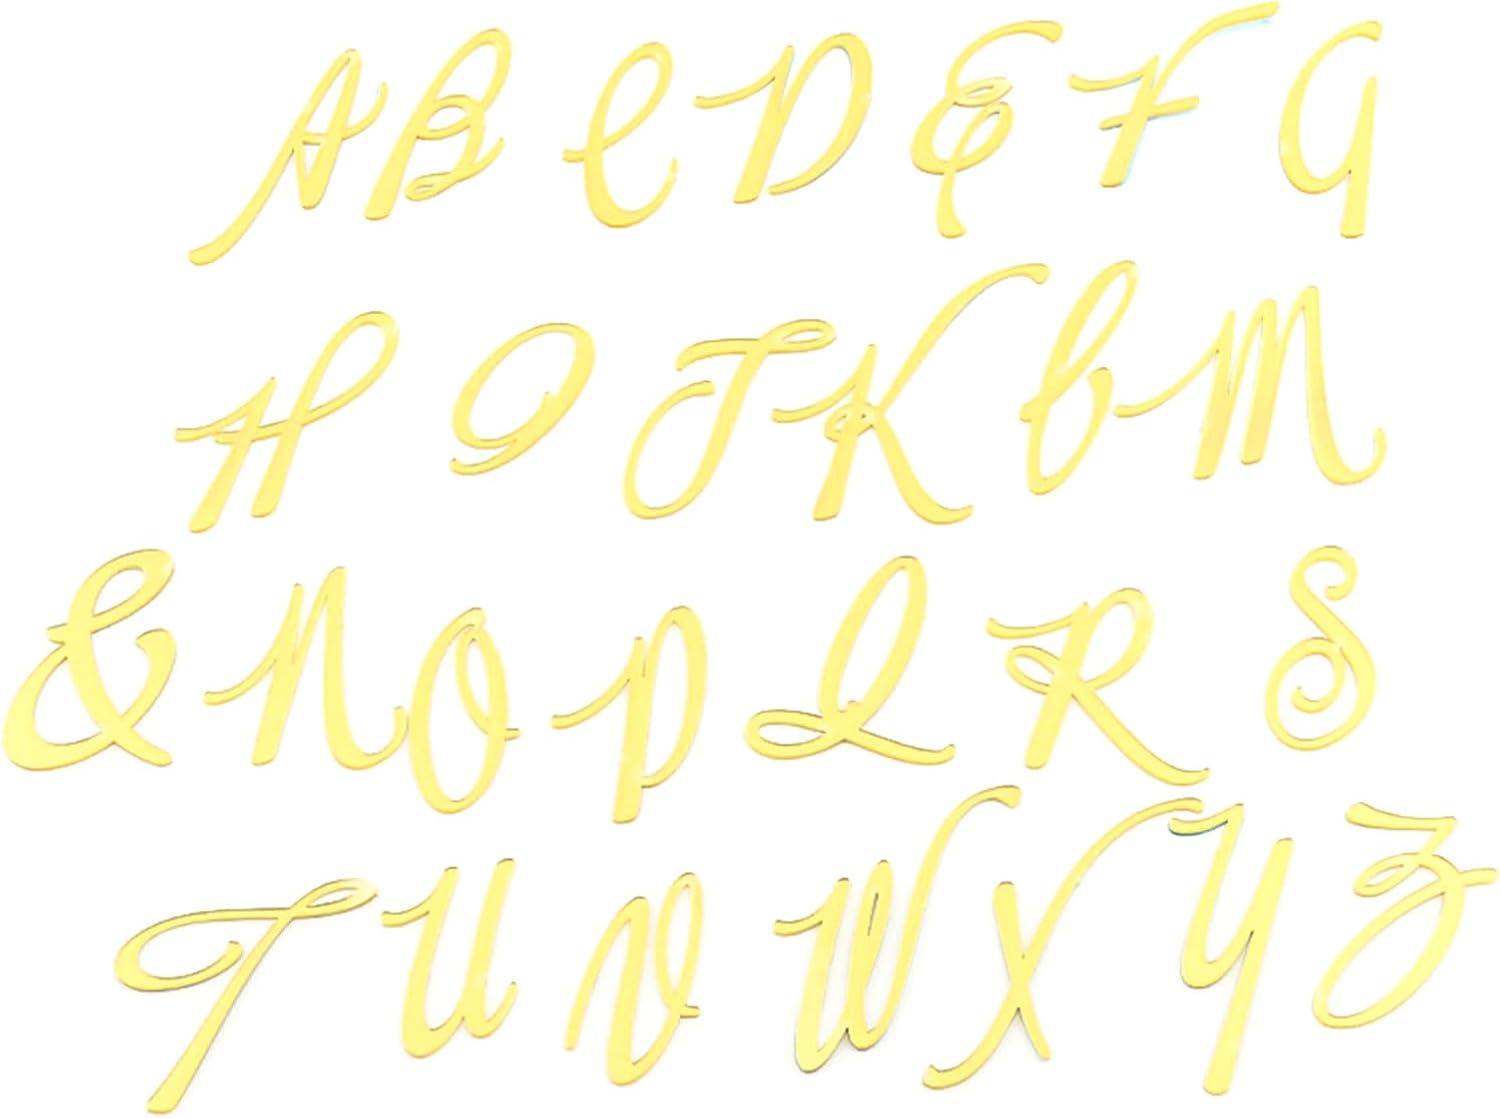 A B C D E F G
H I J K L M
& N O P Q R S
T U V W X Y Z